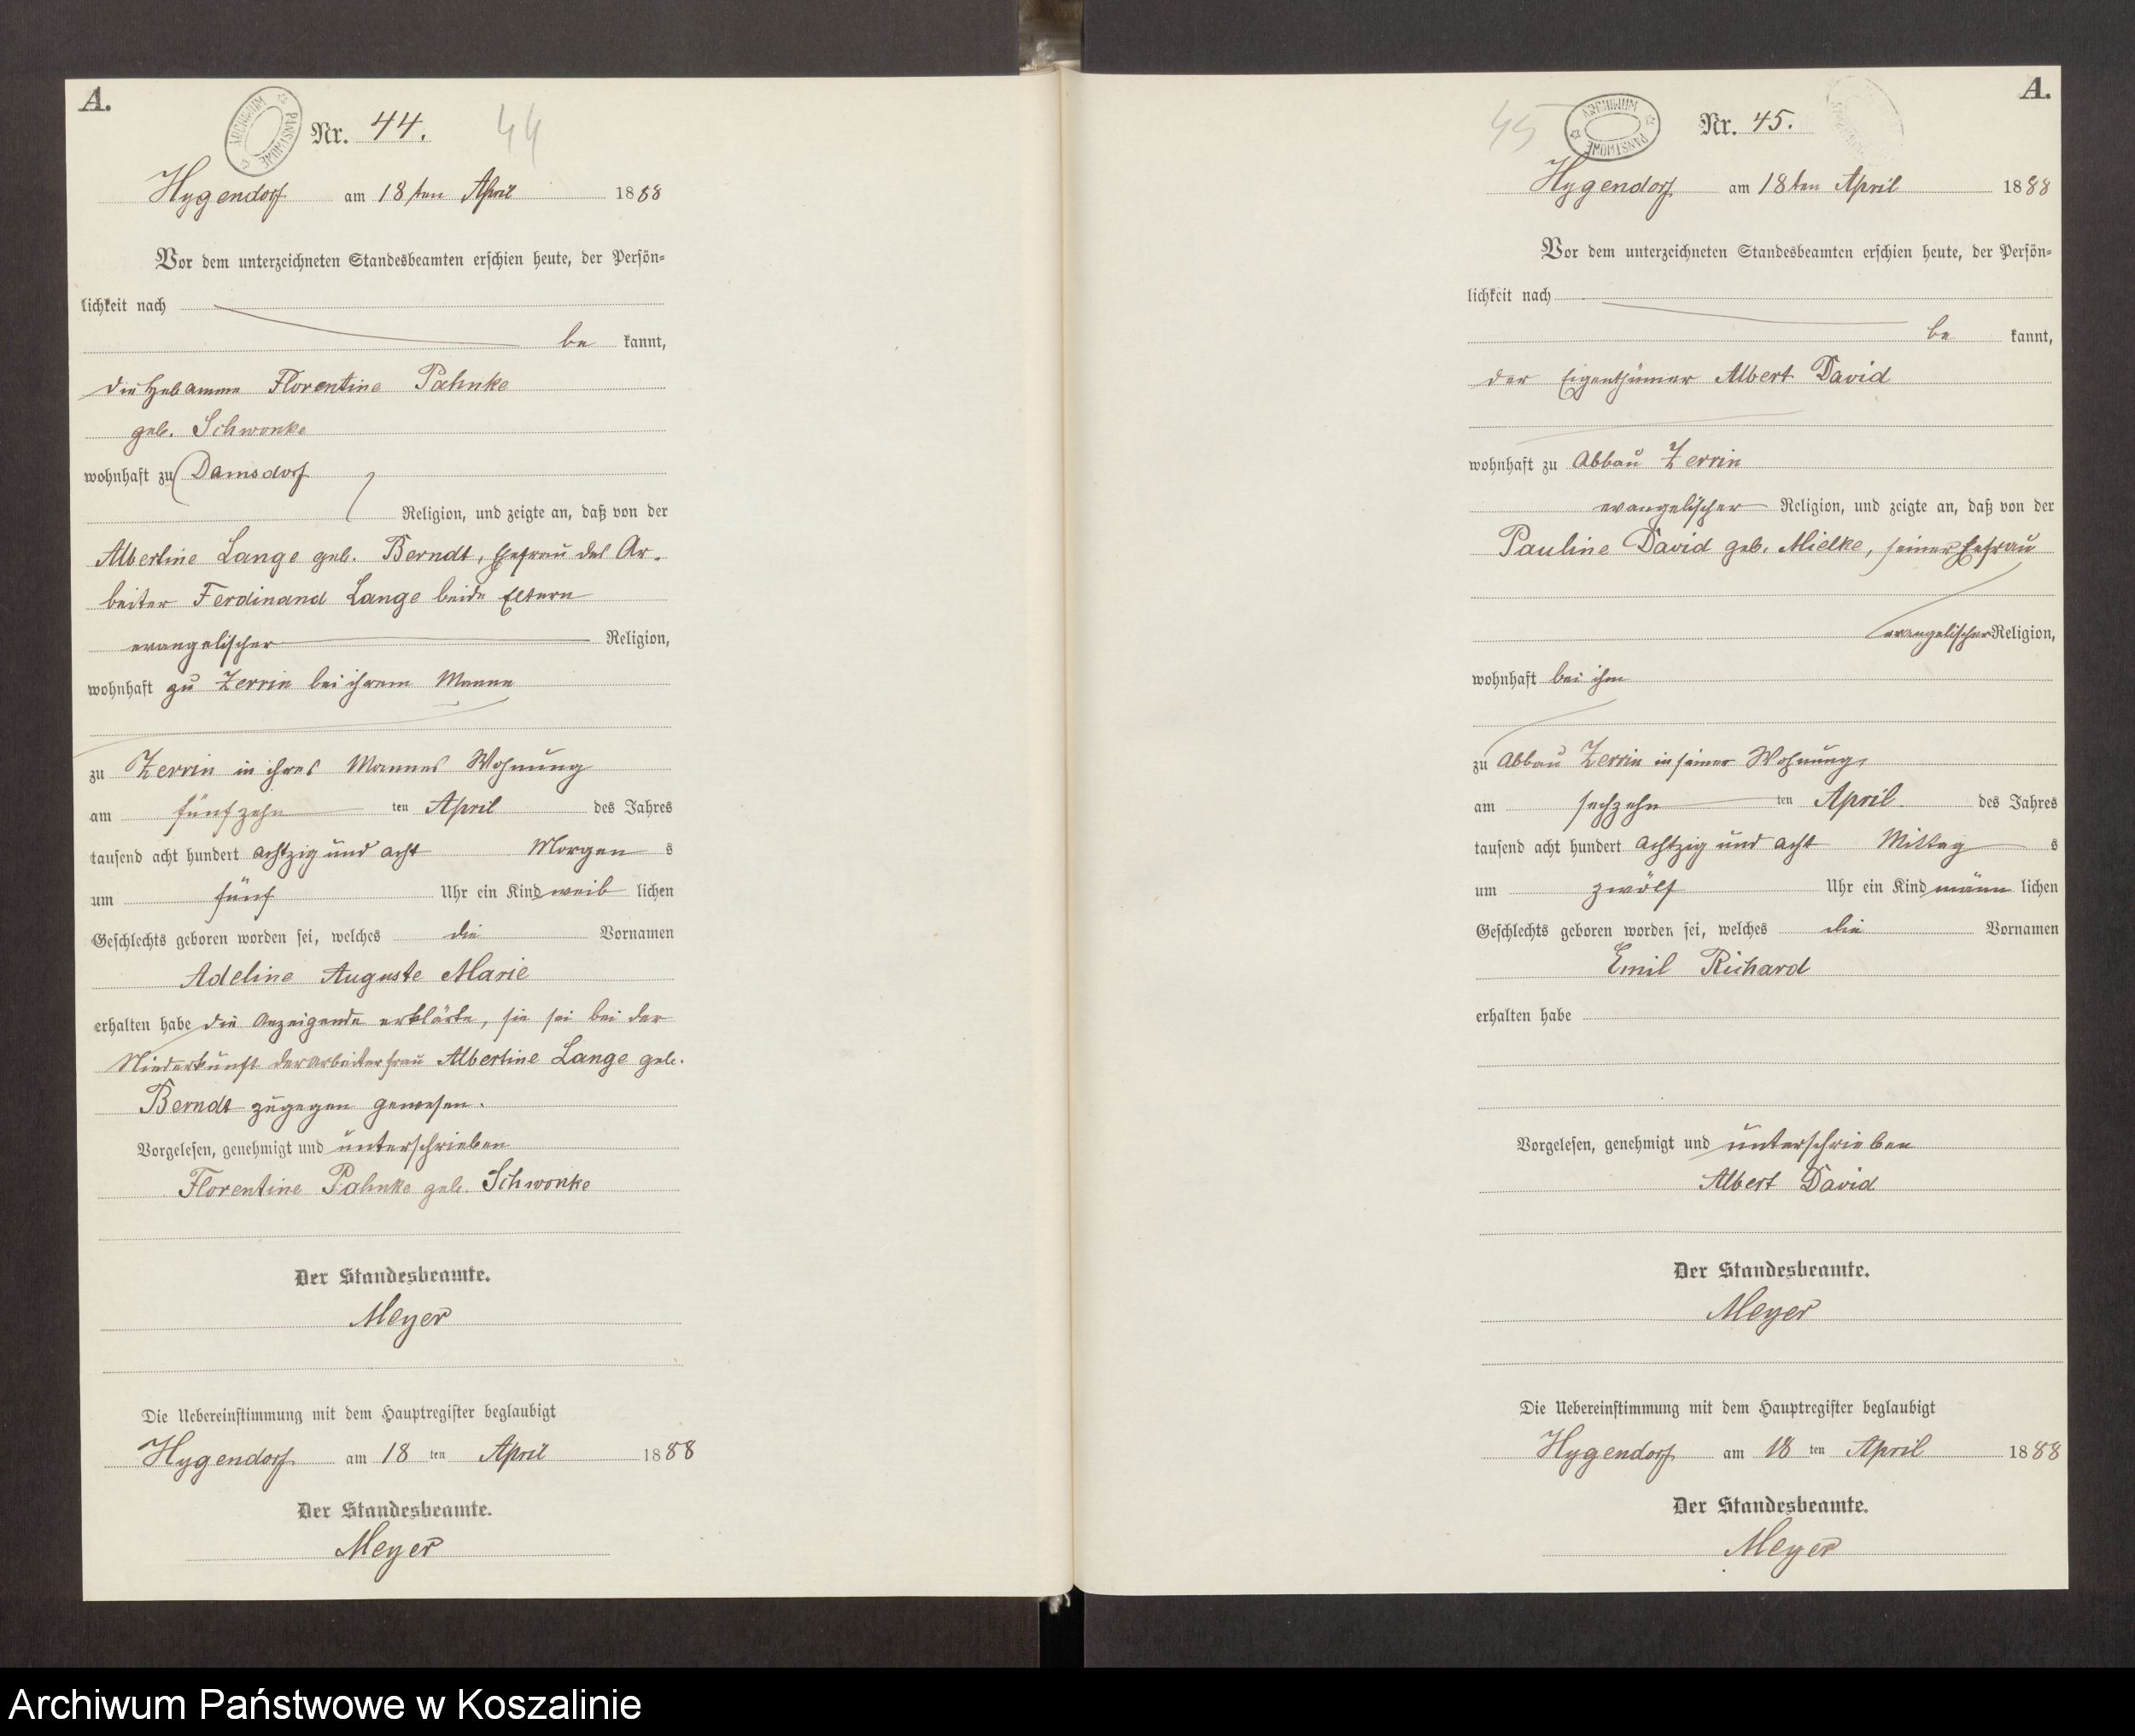 A.
ARCHIWUM PAŃSTWOWE
Nr. 44.
44
Hygendorf am 18ten April 1888
Vor dem unterzeichneten Standesbeamten erschien heute, der Persön-
lichkeit nach
be kannt,
die Hebamme Florentine Pahnke
geb. Schwonke
wohnhaft zu Damsdorf
Religion, und zeigte an, daß von der
Albertine Lange geb. Berndt, Ehefrau des Ar-
beiter Ferdinand Lange beide Eltern
evangelischer Religion,
wohnhaft zu Zerrin bei ihrem Manne
zu Zerrin in ihres Mannes Wohnung
am fünfzehn ten April des Jahres
tausend acht hundert achtzig und acht Morgen s
um fünf Uhr ein Kind weib lichen
Geschlechts geboren worden sei, welches die Vornamen
Adeline Auguste Marie
erhalten habe die Anzeigende erklärte, sie sei bei der
Niederkunft der Arbeiterfrau Albertine Lange geb.
Berndt zugegen gewesen.
Vorgelesen, genehmigt und unterschrieben
Florentine Pahnke geb. Schwonke
Der Standesbeamte.
Meyer
Die Uebereinstimmung mit dem Hauptregister beglaubigt
Hygendorf am 18 ten April 1888
Der Standesbeamte.
Meyer
A.
45
ARCHIWUM PAŃSTWOWE
Nr. 45.
Hygendorf am 18ten April 1888
Vor dem unterzeichneten Standesbeamten erschien heute, der Persön-
lichkeit nach
be kannt,
der Eigenthümer Albert David
wohnhaft zu Abbau Zerrin
evangelischer Religion, und zeigte an, daß von der
Pauline David geb. Mielke, seiner Ehefrau
evangelischer Religion,
wohnhaft bei ihm
zu Abbau Zerrin in seiner Wohnung,
am sechzehn ten April des Jahres
tausend acht hundert achtzig und acht Mittag s
um zwölf Uhr ein Kind männ lichen
Geschlechts geboren worden sei, welches die Vornamen
Emil Richard
erhalten habe
Vorgelesen, genehmigt und unterschrieben
Albert David
Der Standesbeamte.
Meyer
Die Uebereinstimmung mit dem Hauptregister beglaubigt
Hygendorf am 18 ten April 1888
Der Standesbeamte.
Meyer
Archiwum Państwowe w Koszalinie